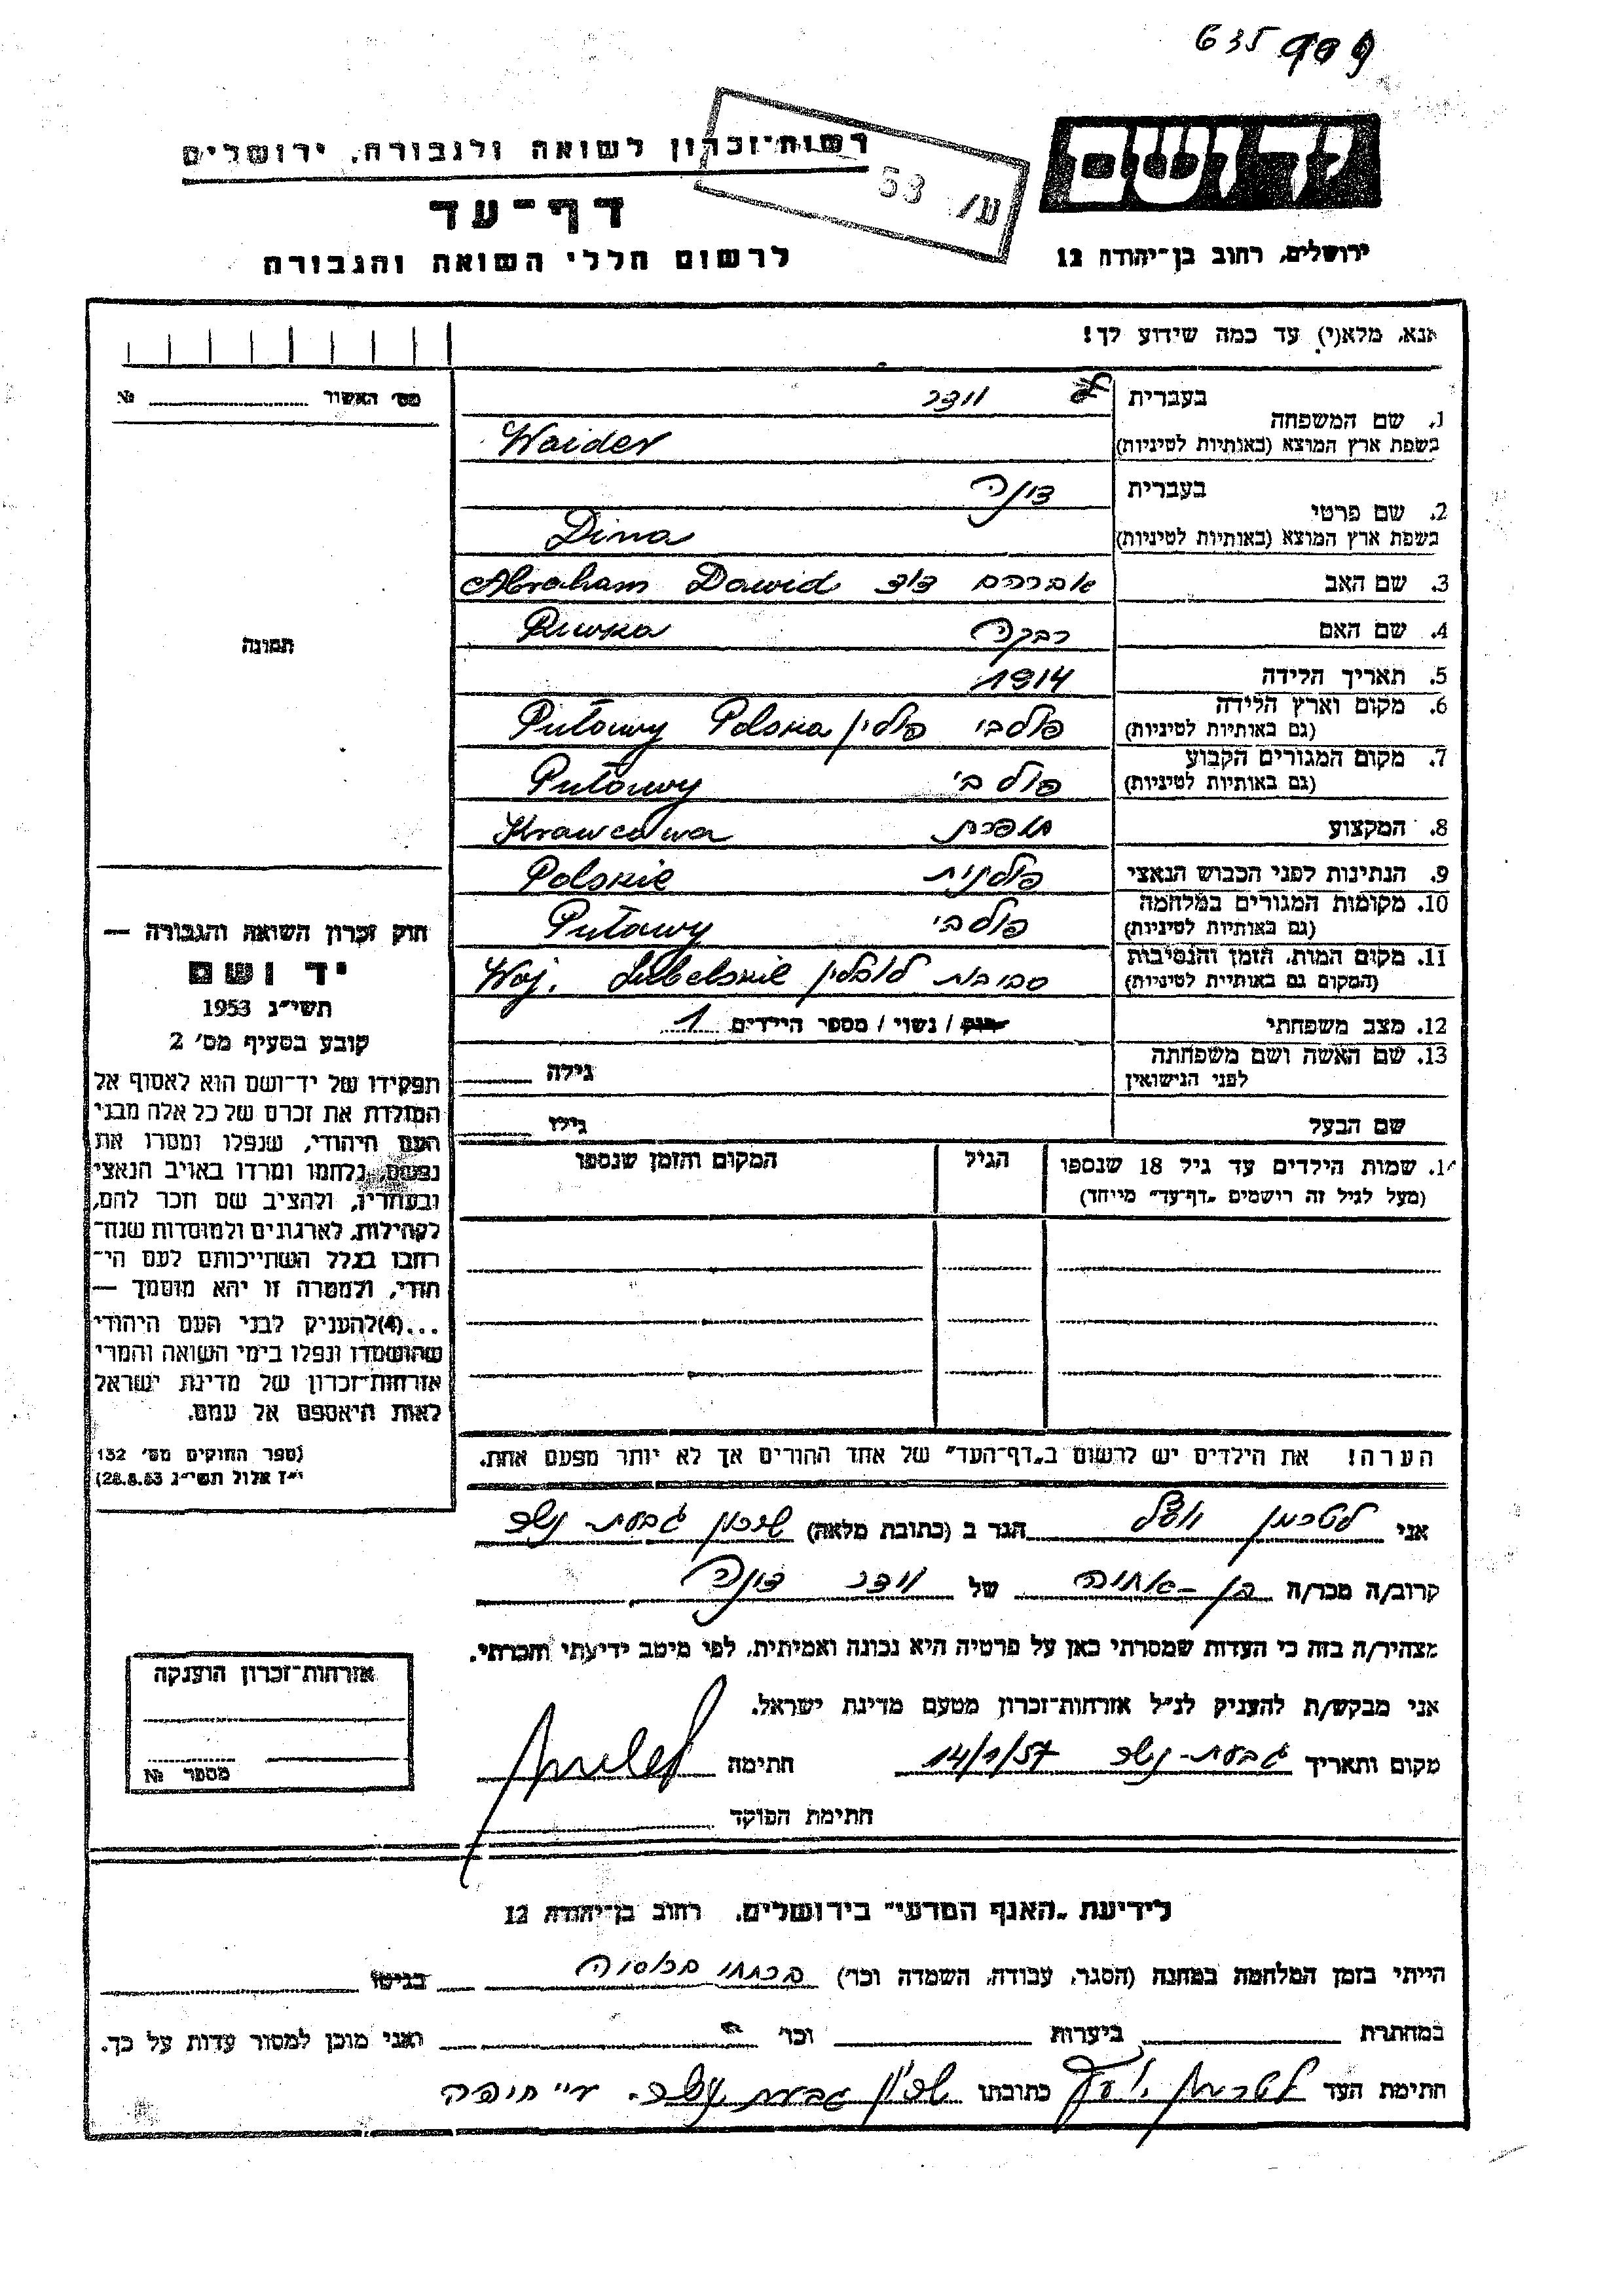 635 909
יד ושם
ירושלים, רחוב בן־יהודה 12
רשות־זכרון לשואה ולגבורה, ירושלים
דף־עד
לרשום חללי השואה והגבורה
ע/ 53
אנא, מלא(י) עד כמה שידוע לך!
מס' האשור № 
1. שם המשפחה
בעברית וידר
בשפת ארץ המוצא (באותיות לטיניות) Waider
2. שם פרטי
בעברית דינה
בשפת ארץ המוצא (באותיות לטיניות) Dina
3. שם האב אברהם דוד Abraham Dawid
4. שם האם רבקה Riwka
5. תאריך הלידה 1914
6. מקום וארץ הלידה (גם באותיות לטיניות) פולבי פולין Puławy Polska
7. מקום המגורים הקבוע (גם באותיות לטיניות) פולבי Puławy
8. המקצוע תופרת Krawcowa
9. הנתינות לפני הכבוש הנאצי פולנית Polskie
10. מקומות המגורים במלחמה (גם באותיות לטיניות) פולבי Puławy
11. מקום המות, הזמן והנסיבות (המקום גם באותיות לטיניות) סביבות לובלין Woj. Lubelskie
12. מצב משפחתי רווק / נשוי / מספר הילדים 1
13. שם האשה ושם משפחתה לפני הנישואין גילה
שם הבעל גילו
שמות הילדים עד גיל 18 שנספו
(מעל לגיל זה רישמים „דף־עד" מייחד)
הגיל
המקום והזמן שנספו
הערה! את הילדים יש לרשום ב„דף־העד" של אחד ההורים אך לא יותר מפעם אחת.
תמונה
חוק זכרון השואה והגבורה —
יד ושם
תשי״ג 1953
קובע בסעיף מס' 2
תפקידו של יד־ושם הוא לאסוף אל
המולדת את זכרם של כל אלה מבני
העם היהודי, שנפלו ומסרו את
נפשם, נלחמו ומרדו באויב הנאצי
ובעוזריו, ולהציב שם וזכר להם,
לקהילות, לארגונים ולמוסדות שנח־
רבו בגלל השתייכותם לעם הי־
הודי, ולמטרה זו יהא מוסמך —
...(4) להעניק לבני העם היהודי
שהושמדו ונפלו בימי השואה והמרי
אזרחות־זכרון של מדינת ישראל
לאות היאספם אל עמם.
(ספר החוקים מס' 132
י״ז אלול תשי״ג 28.8.53)
אני לטרמן הגר ב (כתובת מלאה) שיכון גבעת-נשר
קרוב/ה מכר/ה בן-אחיה של וידר דינה
מצהיר/ה בזה כי העדות שמסרתי כאן על פרטיה היא נכונה ואמיתית, לפי מיטב ידיעתי והכרתי.
אני מבקש/ת להעניק לנ״ל אזרחות־זכרון מטעם מדינת ישראל.
מקום ותאריך גבעת-נשר 14/1/57 חתימה
חתימת הפוקד
אזרחות־זכרון הוענקה
מספר №
לידיעת „האגף המדעי" בירושלים, רחוב בן־יהודה 12
הייתי בזמן המלחמה במחנה (הסגר, עבודה, השמדה וכו') ברחתי מרוסיה בגיטו
במחתרת ביערות וכו' ואני מוכן למסור עדות על כך.
חתימת העד לטרמן כתובתו שיכון גבעת נשר. ע״י חיפה